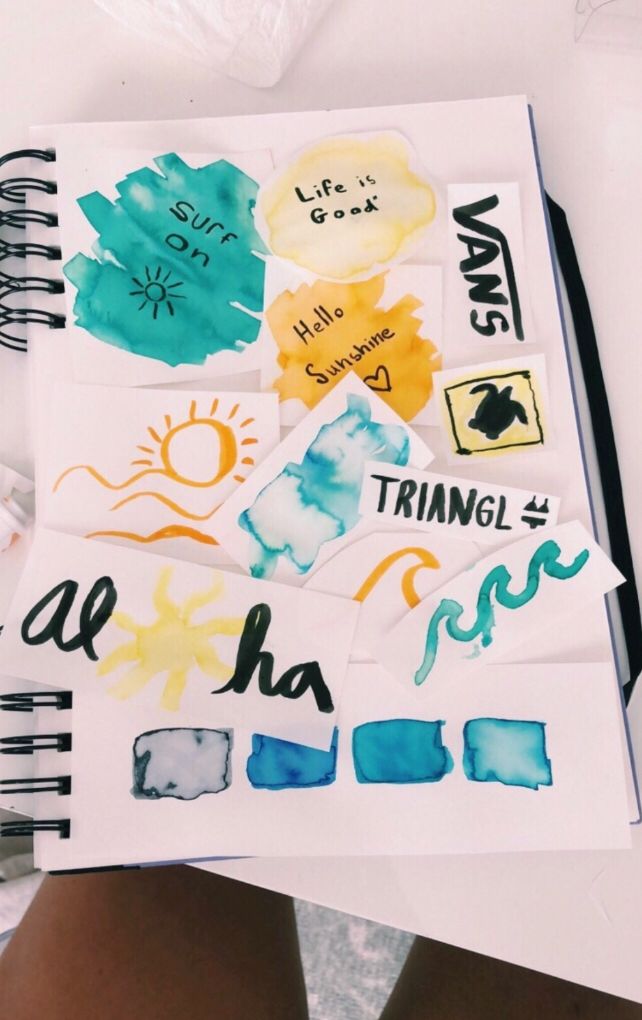 Surf
On
Life is
Good
VANS
Hello
Sunshine
TRIANGL
al ha